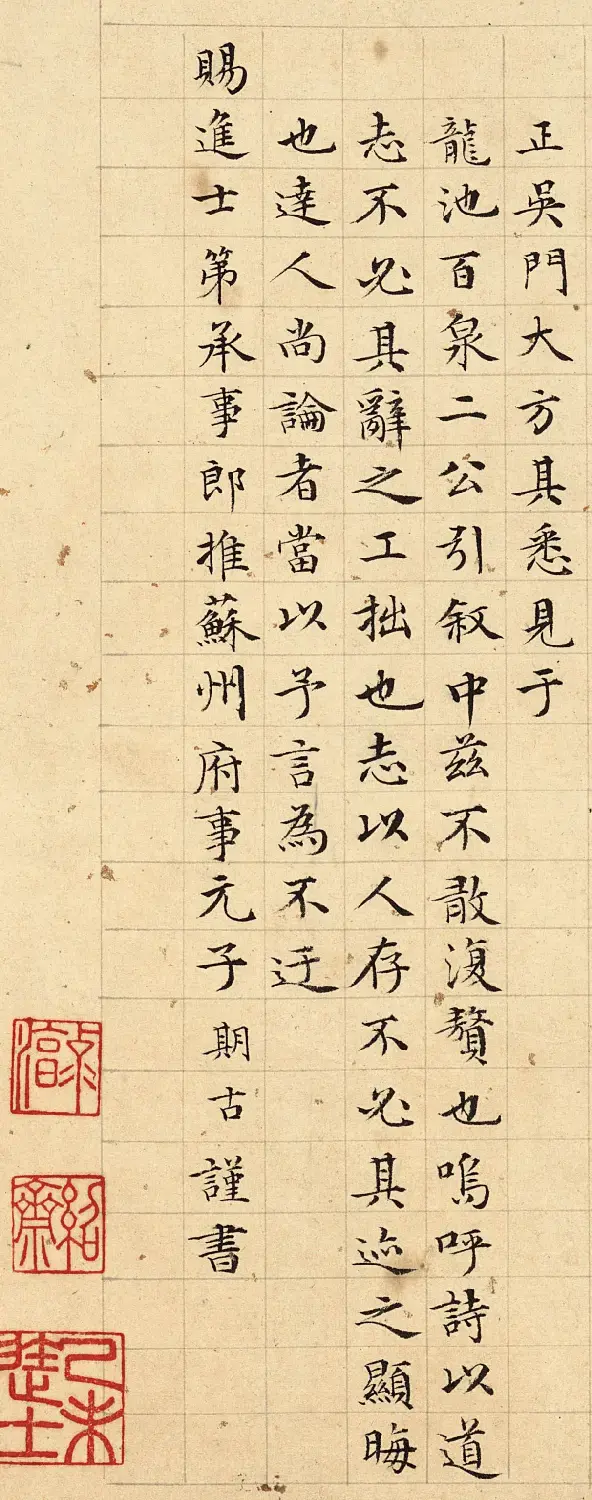 正吳門大方其悉見于
龍池百泉二公引敘中兹不敢復贅也嗚呼詩以道
志不必其辭之工拙也志以人存不必其迹之顯晦
也達人尚論者當以予言為不迂
賜進士第承事郎推蘇州府事元子期古謹書
己未進士